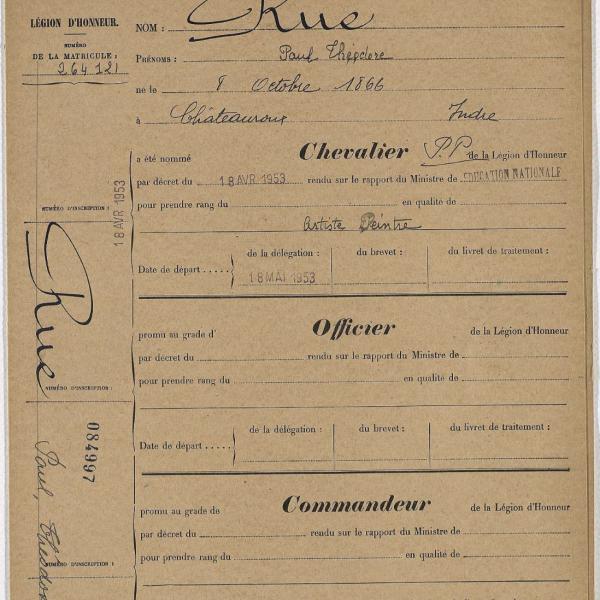 LÉGION D'HONNEUR.
NUMÉRO
DE LA MATRICULE :
264121
NOM : Rue
PRÉNOMS : Paul Théodore
né le 8 Octobre 1866
à Châteauroux Indre
a été nommé Chevalier P.P de la Légion d'Honneur
par décret du 18 AVR 1953 rendu sur le rapport du Ministre de EDUCATION NATIONALE
pour prendre rang du en qualité de
Artiste Peintre
de la délégation : du brevet : du livret de traitement :
Date de départ .....
18 MAI 1953
promu au grade d' Officier de la Légion d'Honneur
par décret du rendu sur le rapport du Ministre de
pour prendre rang du en qualité de
de la délégation : du brevet : du livret de traitement :
Date de départ .....
promu au grade de Commandeur de la Légion d'Honneur
par décret du rendu sur le rapport du Ministre de
pour prendre rang du en qualité de
de la délégation : du brevet : du livret de traitement :
NUMÉRO D'INSCRIPTION :
18 AVR 1953
Rue
NUMÉRO D'INSCRIPTION :
084997
Paul, Théodore
NUMÉRO D'INSCRIPTION :